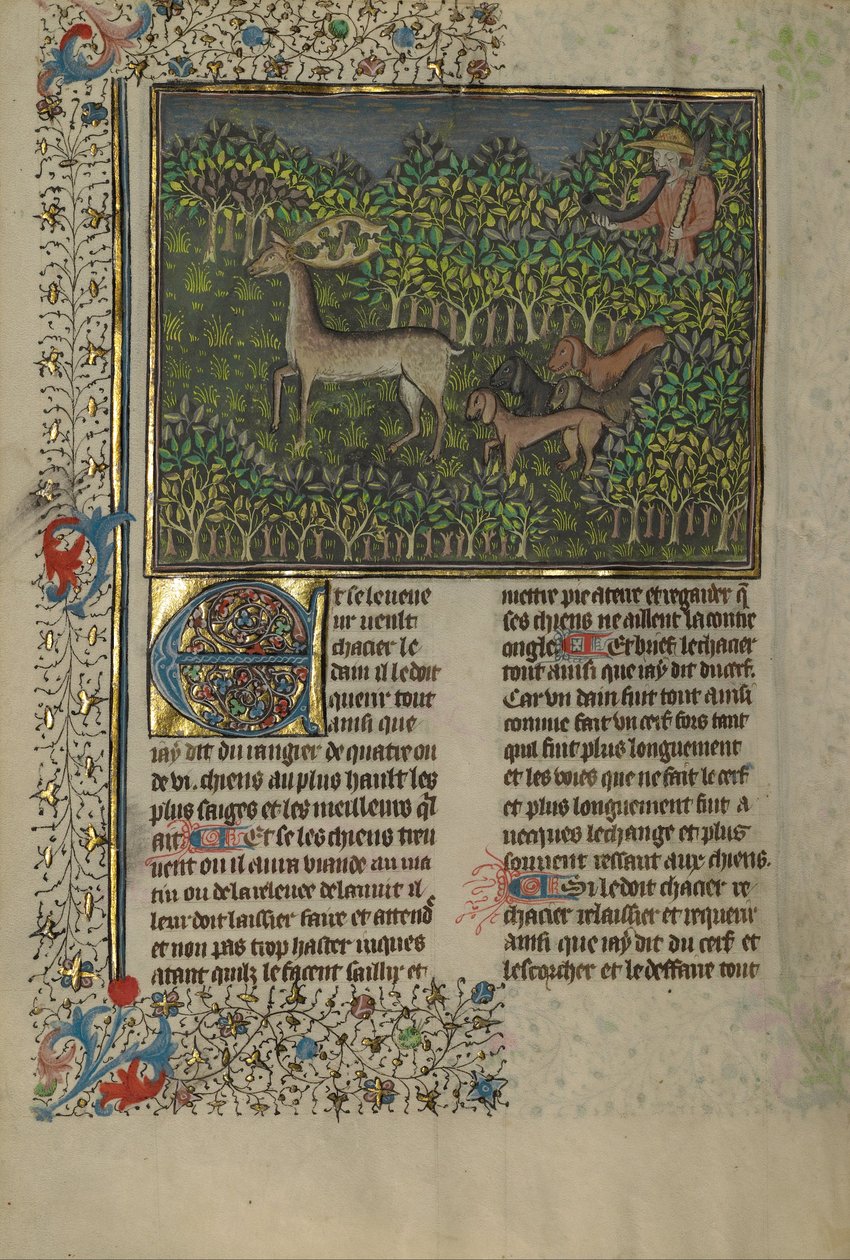 Et se le veneur
ur veult
chacier le
dain il le doit
querir tout
ainsi que
iay dit du rangier de quatre ou
de vi. chiens au plus hault les
plus saiges et les meilleurs ql
ait Et se les chiens treu
uent ou il aura viande au ma
tin ou de la releuee de la nuit il
leur doit laissier faire et attend
et non pas trop haster iuques
atant quilz le facent saillir et
mettre pie a terre et regarder q̄
ses chiens ne aillent la contre
ongle Et brief le chacier
tout ainsi que iay dit du cerf.
Car vn dain fuit tout ainsi
comme fait vn cerf fors tant
quil fuit plus longuement
et les voies que ne fait le cerf
et plus longuement fuit a
uecques le change et plus
souuent ressaut aux chiens.
Si le doit chacier re
chacier relaissier et requerir
ainsi que iay dit du cerf et
lescorcher et le deffaire tout